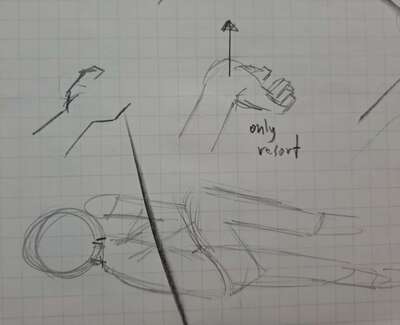 only
resort